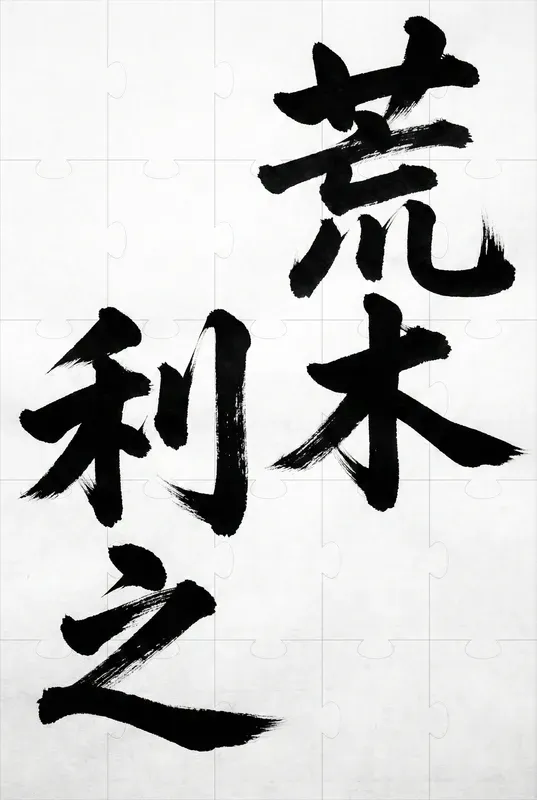 荒木
利之